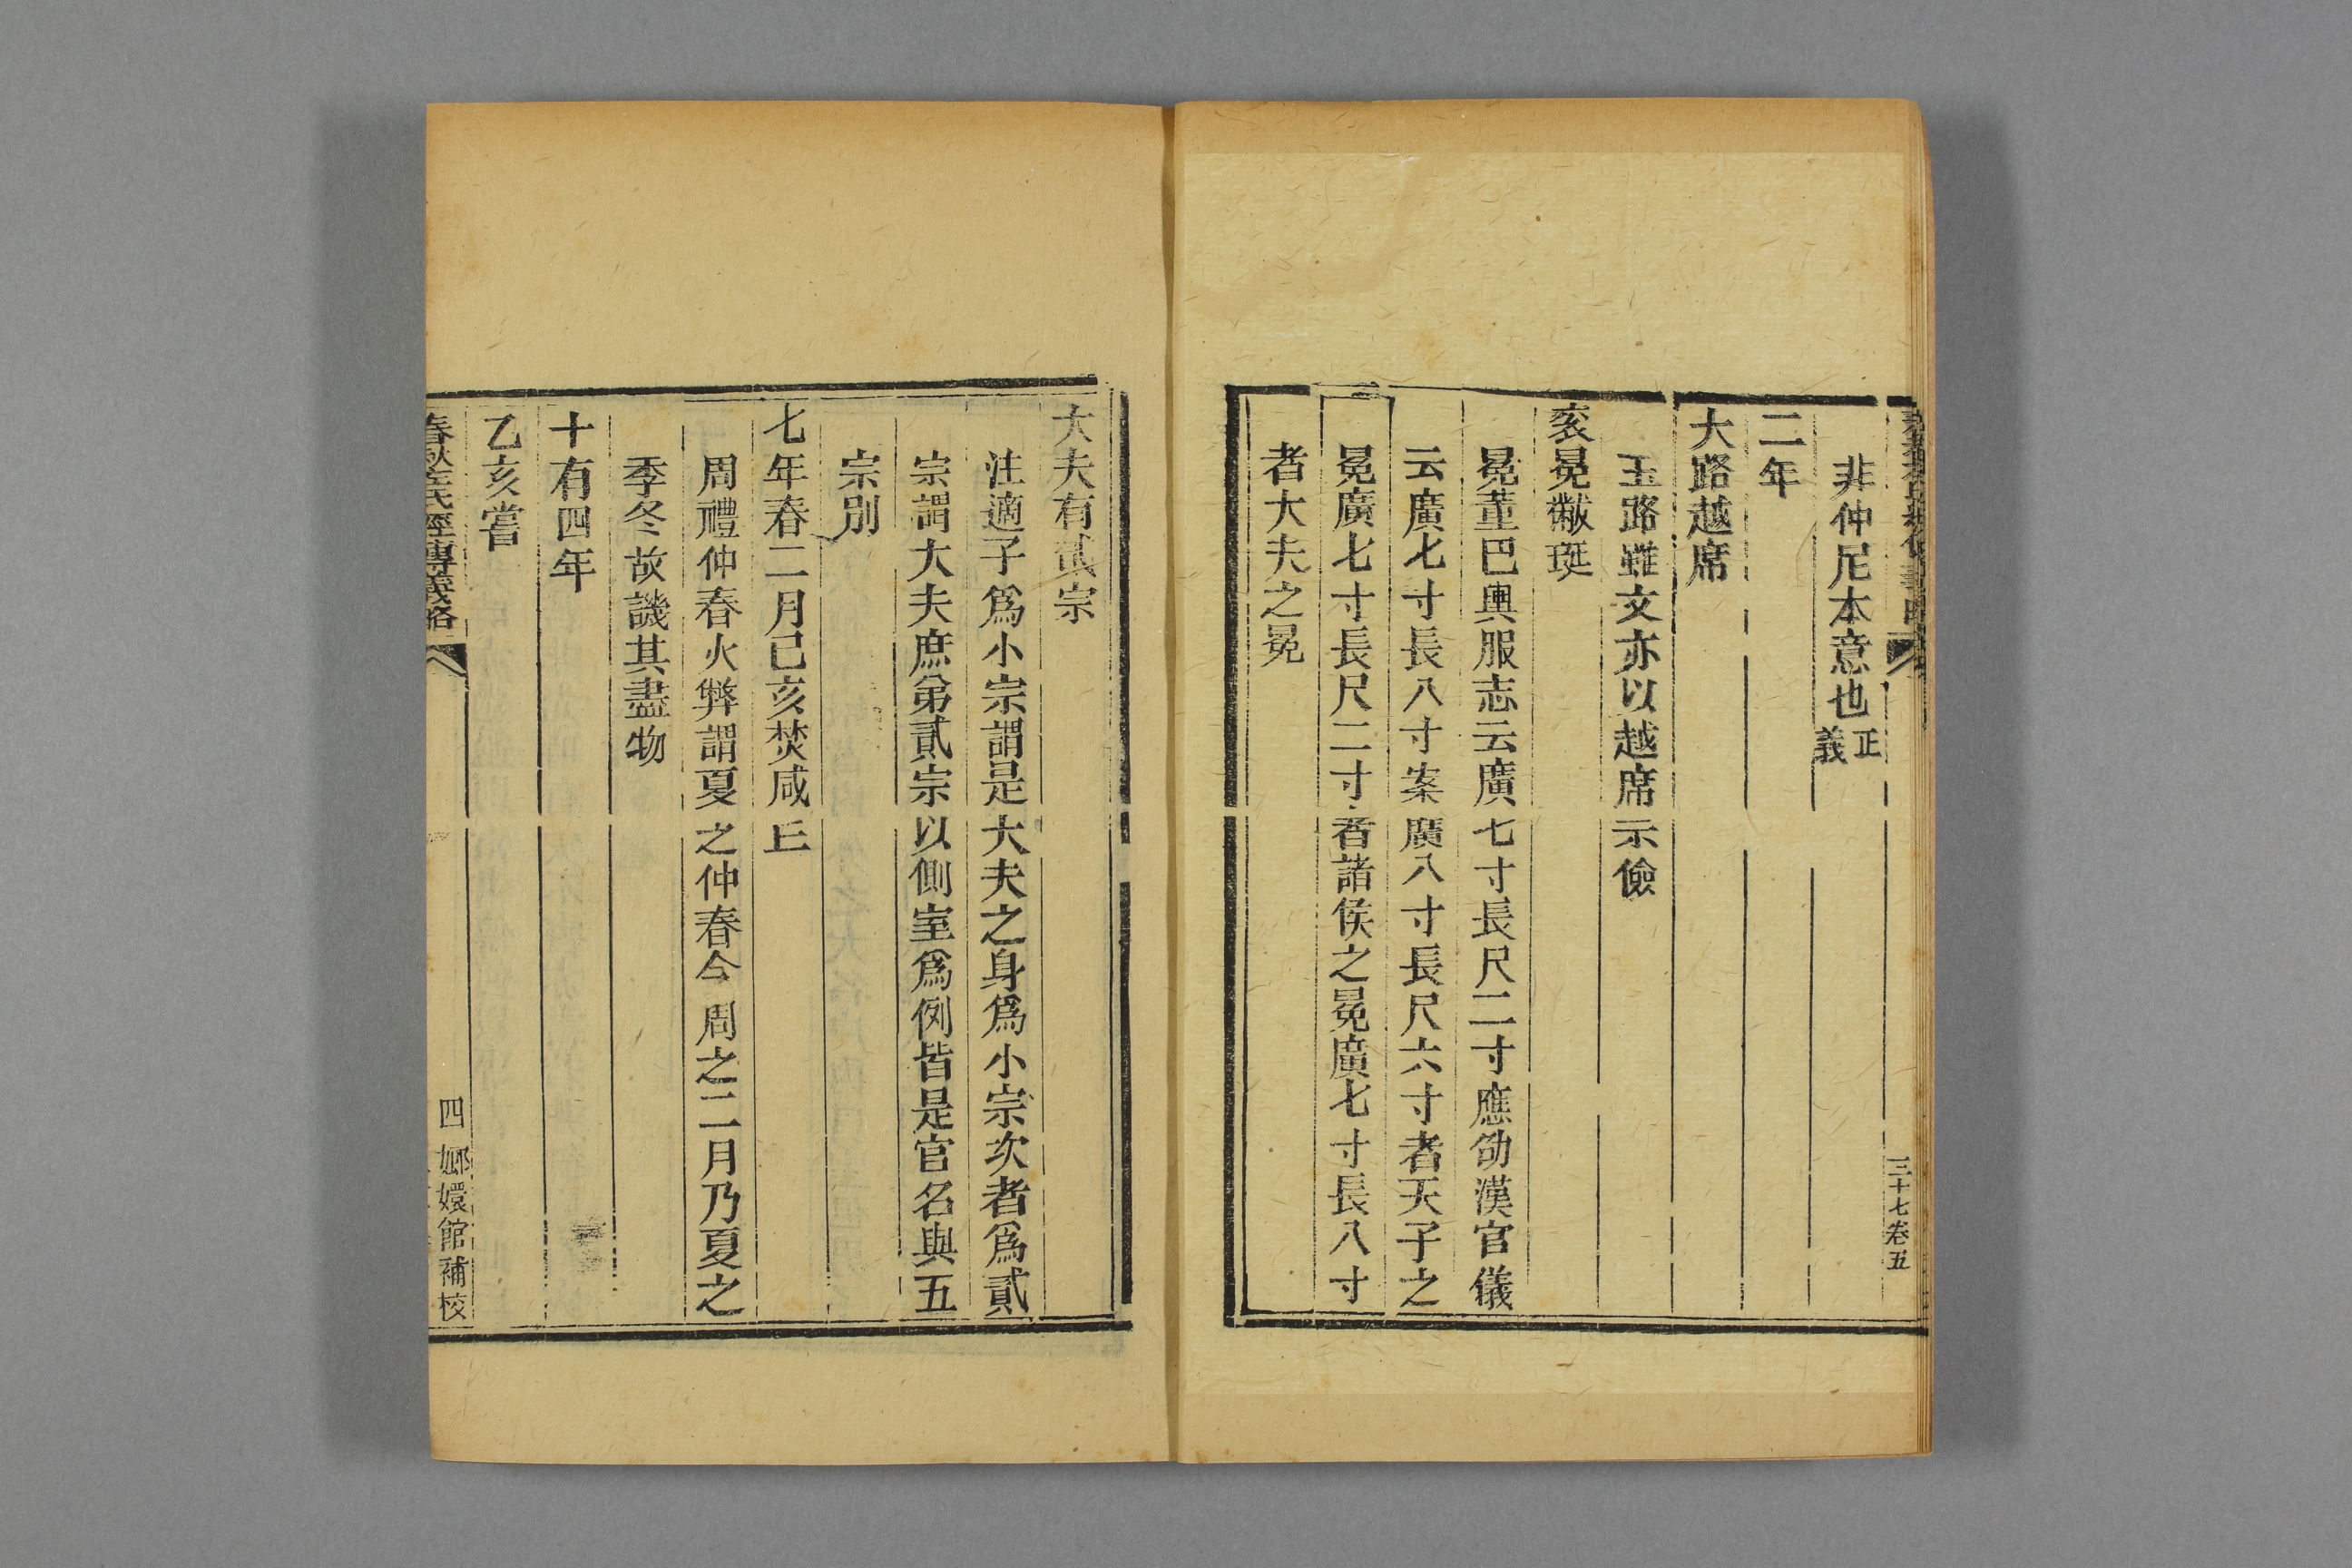 三十七卷五
非仲尼本意也正義
二年
大路越席
玉路雖文亦以越席示儉
袞冕黻珽
冕董巴輿服志云廣七寸長尺二寸應劭漢官儀
云廣七寸長八寸案廣八寸長尺六寸者天子之
冕廣七寸長尺二寸者諸侯之冕廣七寸長八寸
者大夫之冕
大夫有貳宗
注適子爲小宗謂是大夫之身爲小宗次者爲貳
宗謂大夫庶弟貳宗以側室爲例皆是官名與五
宗別
七年春二月己亥焚咸丘
周禮仲春火弊謂夏之仲春今周之二月乃夏之
季冬故譏其盡物
十有四年
乙亥嘗
春秋左氏經傳義略
四 嫏嬛館補校